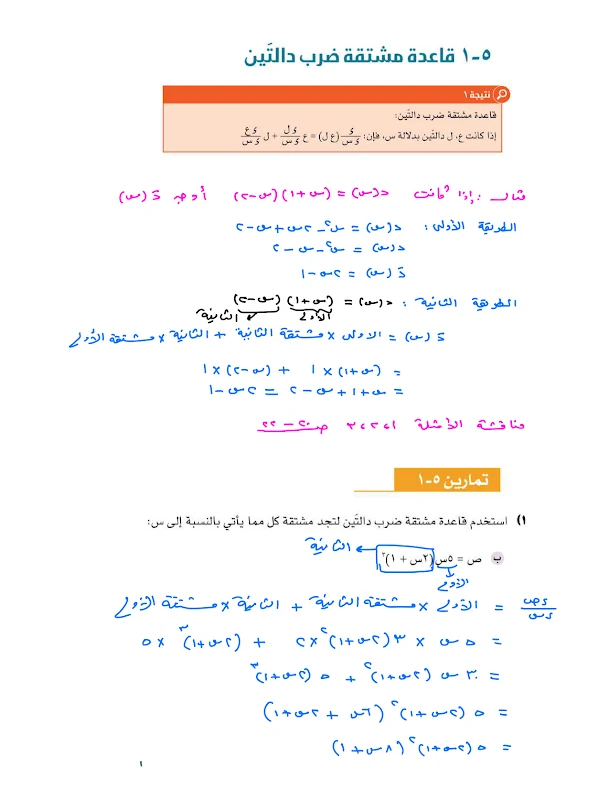 ٥-١ قاعدة مشتقة ضرب دالتَين
نتيجة ١
قاعدة مشتقة ضرب دالتَين:
إذا كانت ع، ل دالتَين بدلالة س، فإن: ءَ/ءَس (ع ل) = ع ءَل/ءَس + ل ءَع/ءَس
مثال : إذا كانت د(س) = (س+١)(س-٢) أوجد دَ(س)
الطريقة الأولى : د(س) = س٢ - ٢س + س - ٢
د(س) = س٢ - س - ٢
دَ(س) = ٢س - ١
الطريقة الثانية : د(س) = (س+١)(س-٢)
الأولى الثانية
دَ(س) = الاولى × مشتقة الثانية + الثانية × مشتقة الأولى
= (س+١) × ١ + (س-٢) × ١
= س+١+س-٢ = ٢س-١
مناقشة الأمثلة ١،٢،٣ ص ٢٠ - ٢٢
تمارين ٥-١
١) استخدم قاعدة مشتقة ضرب دالتَين لتجد مشتقة كل مما يأتي بالنسبة إلى س:
الثانية
ب ص = ٥س(٢س + ١)٣
الأولى
ءص/ءس = الأولى × مشتقة الثانية + الثانية × مشتقة الأولى
= ٥س × ٣(٢س+١)٢ × ٢ + (٢س+١)٣ × ٥
= ٣٠س (٢س+١)٢ + ٥(٢س+١)٣
= ٥(٢س+١)٢ (٦س + ٢س+١)
= ٥(٢س+١)٢ (٨س+١)
١